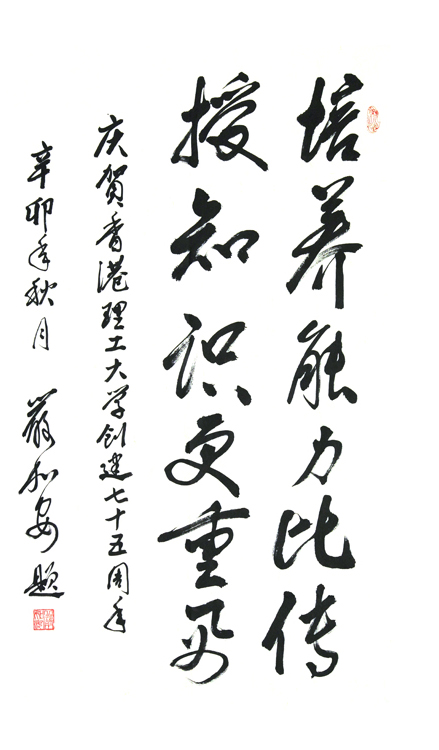 培养能力比传
授知识更重要
庆贺香港理工大学创建七十五周年
辛卯年秋月 嚴加安题